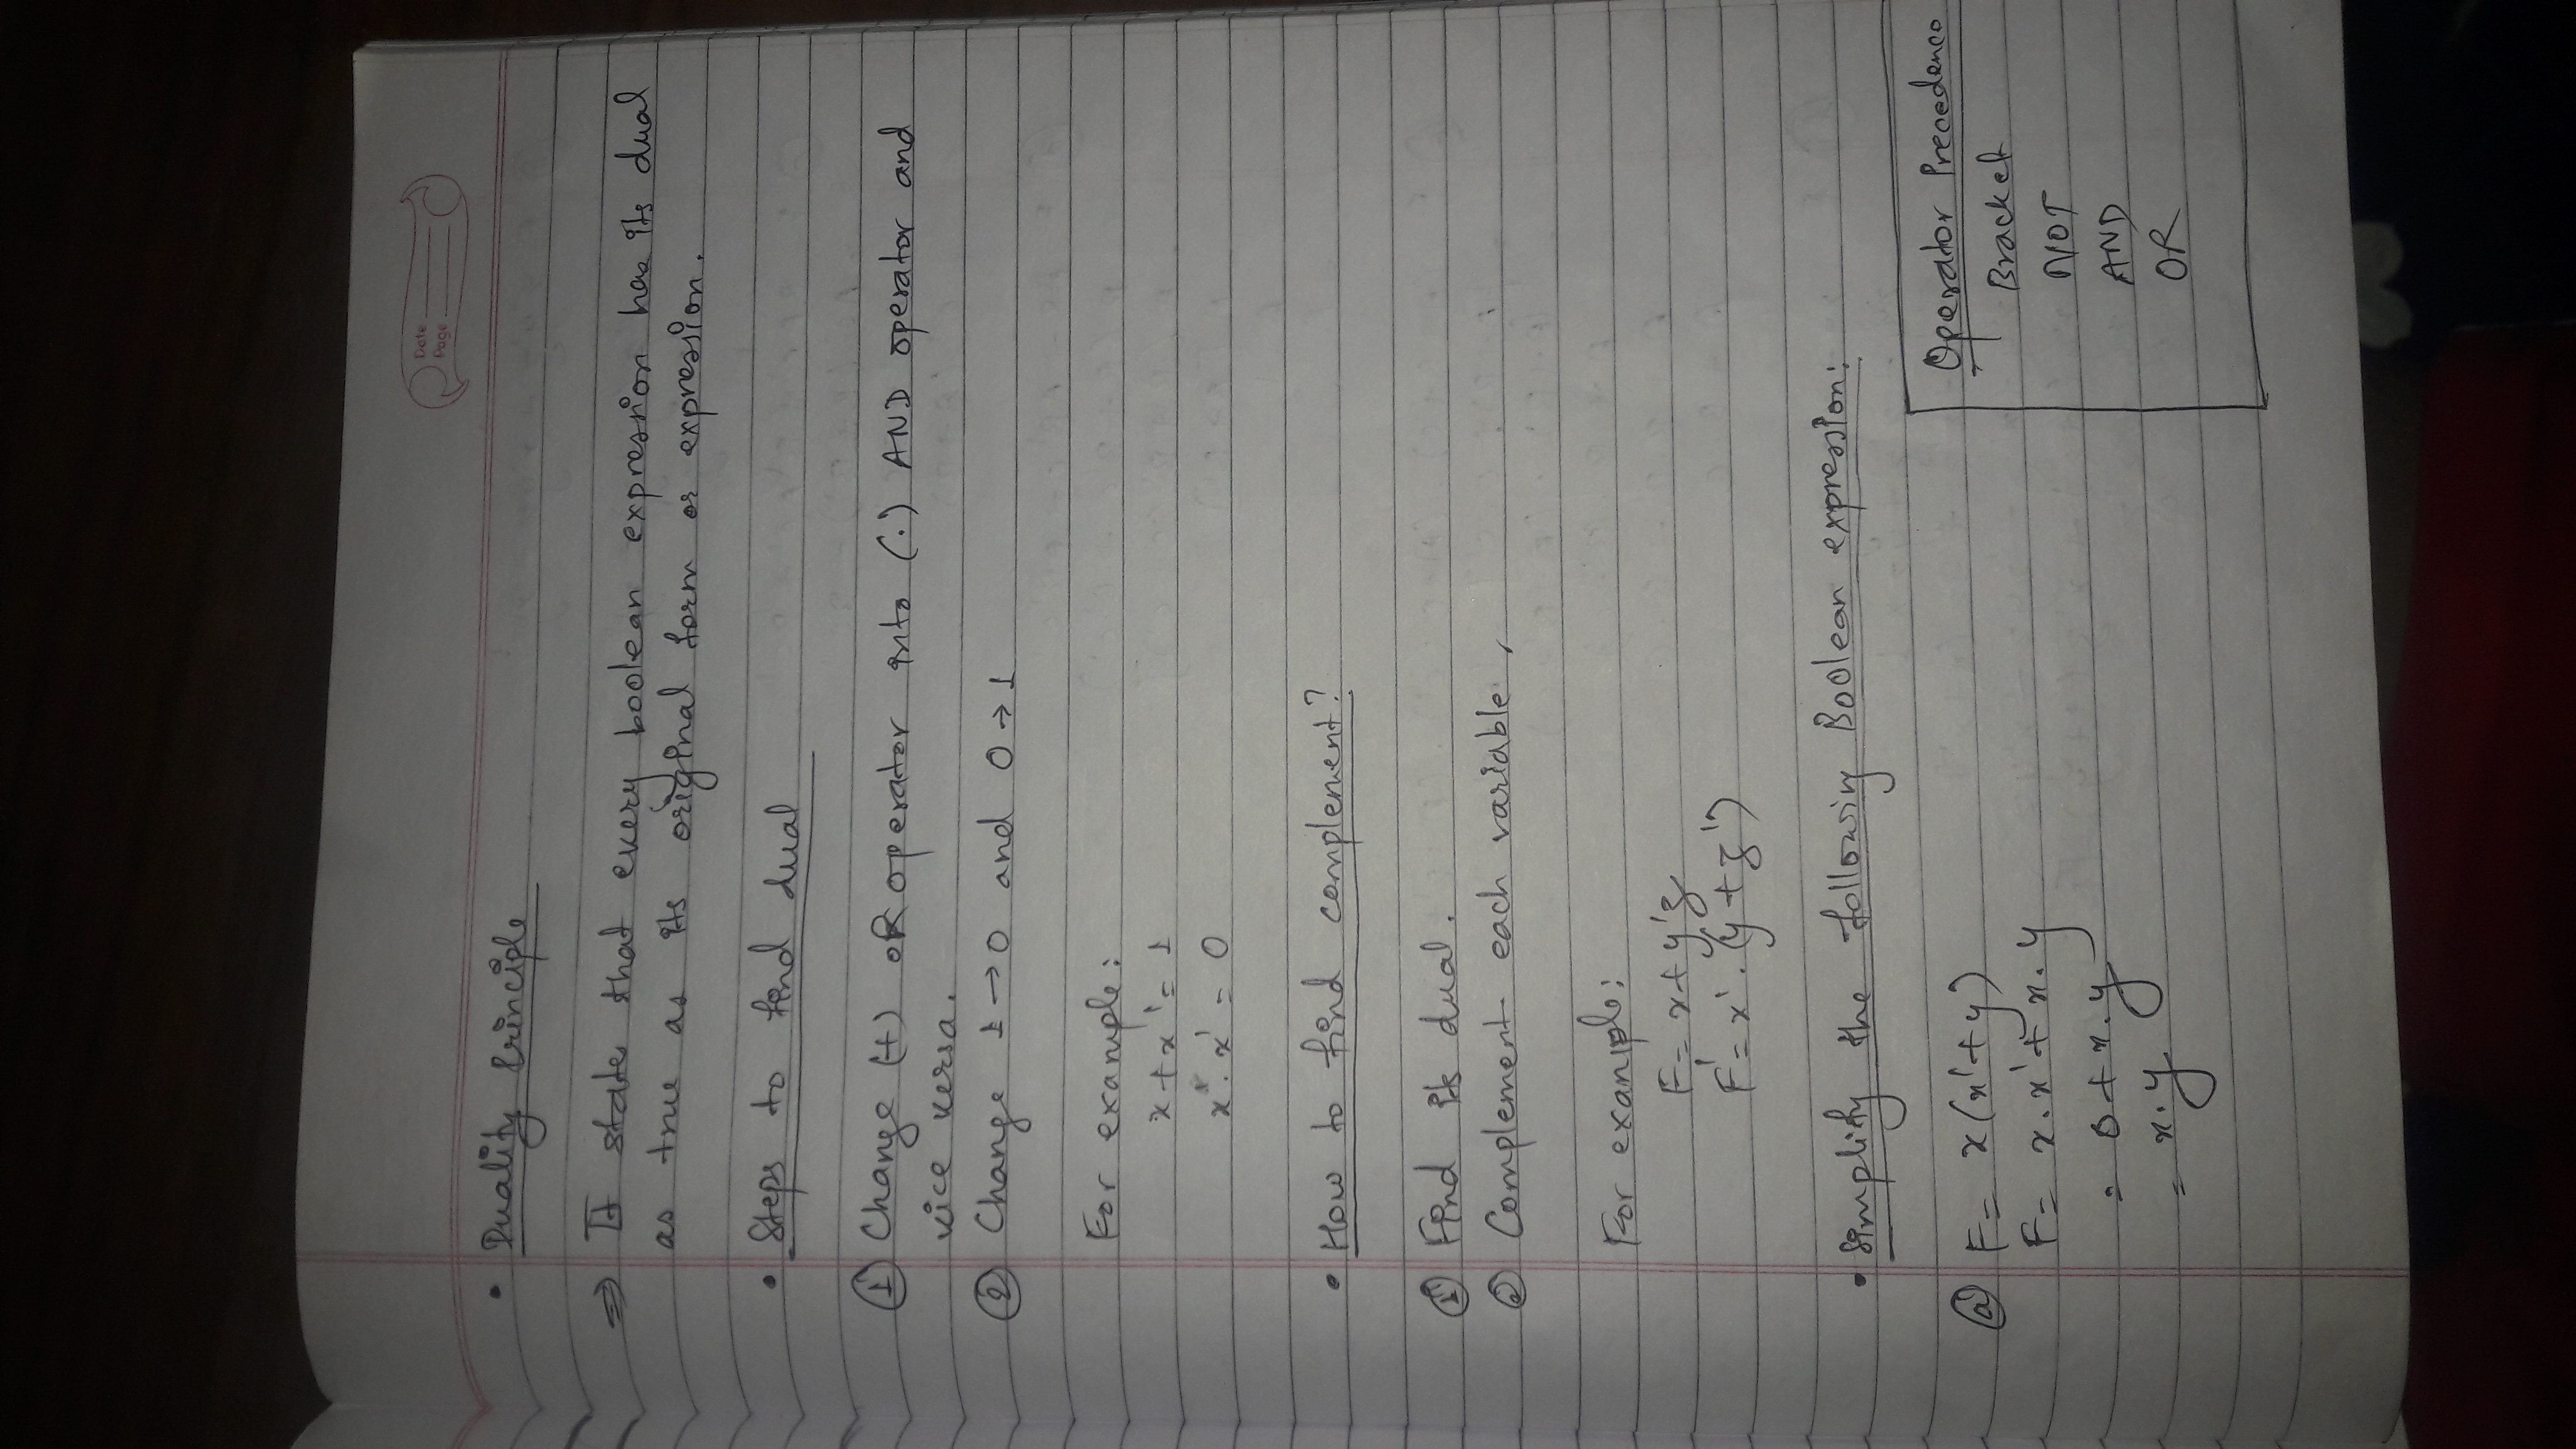 Date
Page
• Duality Principle
⇒ It states that every boolean expression have its dual
as true as its original form or expression.
• Steps to find dual
① Change (+) OR operator into (.) AND operator and
vice versa.
② Change 1 → 0 and 0 → 1
For example:
x + x' = 1
x . x' = 0
• How to find complement?
① Find its dual.
② Complement each variable,
For example:
F = x + y'z
F' = x' . (y + z')
• Simplify the following Boolean expression:
ⓐ F = x (x' + y)
F = x . x' + x . y
= 0 + x . y
= x . y
Operator Precedence
Bracket
NOT
AND
OR